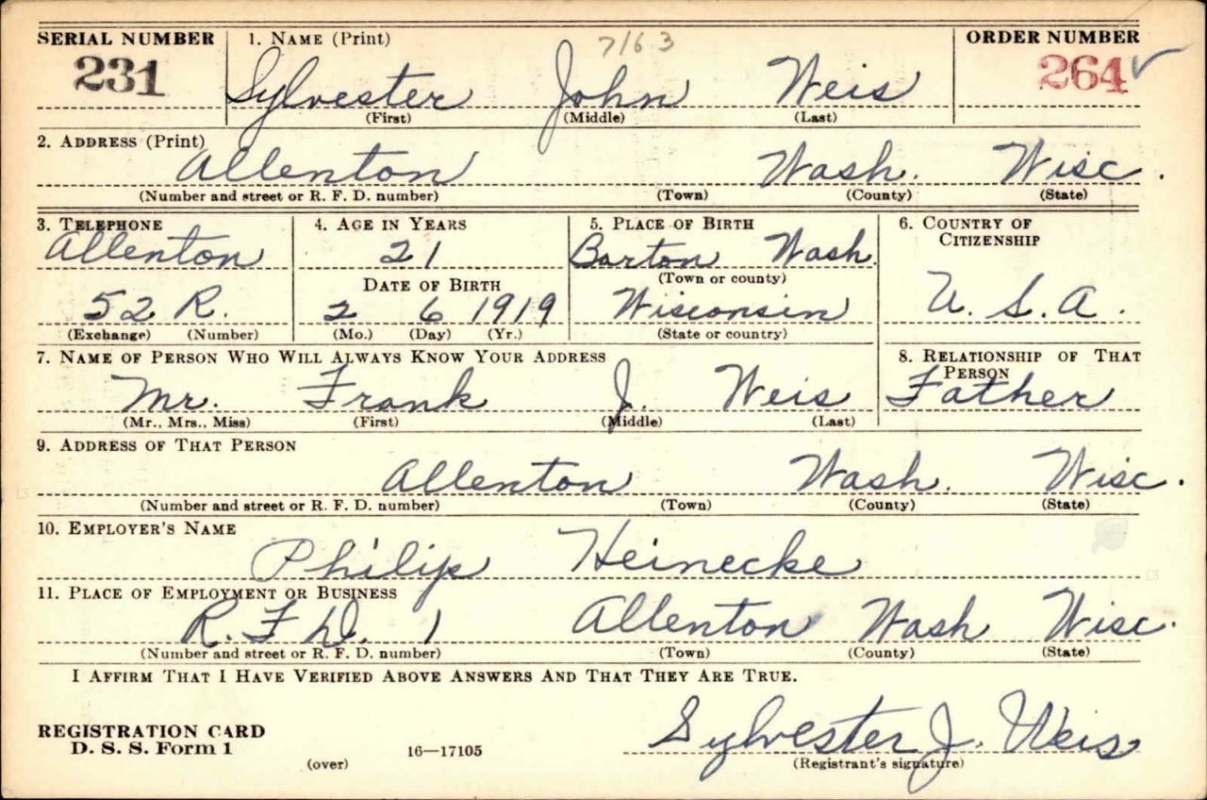 SERIAL NUMBER 1. NAME (Print) 7163 ORDER NUMBER
231 Sylvester John Weis 264 ✓
(First) (Middle) (Last)
2. ADDRESS (Print)
Allenton Wash. Wisc.
(Number and street or R. F. D. number) (Town) (County) (State)
3. TELEPHONE 4. AGE IN YEARS 5. PLACE OF BIRTH 6. COUNTRY OF CITIZENSHIP
Allenton 21 Barton Wash.
DATE OF BIRTH (Town or county)
52 R. 2 6 1919 Wisconsin U. S. A.
(Exchange) (Number) (Mo.) (Day) (Yr.) (State or country)
7. NAME OF PERSON WHO WILL ALWAYS KNOW YOUR ADDRESS 8. RELATIONSHIP OF THAT PERSON
Mr. Frank J. Weis Father
(Mr., Mrs., Miss) (First) (Middle) (Last)
9. ADDRESS OF THAT PERSON
Allenton Wash. Wisc.
(Number and street or R. F. D. number) (Town) (County) (State)
10. EMPLOYER'S NAME
Philip Heinecke
11. PLACE OF EMPLOYMENT OR BUSINESS
R. F. D. 1 Allenton Wash Wisc.
(Number and street or R. F. D. number) (Town) (County) (State)
I AFFIRM THAT I HAVE VERIFIED ABOVE ANSWERS AND THAT THEY ARE TRUE.
REGISTRATION CARD
D. S. S. Form 1 16—17105 Sylvester J. Weis
(over) (Registrant's signature)